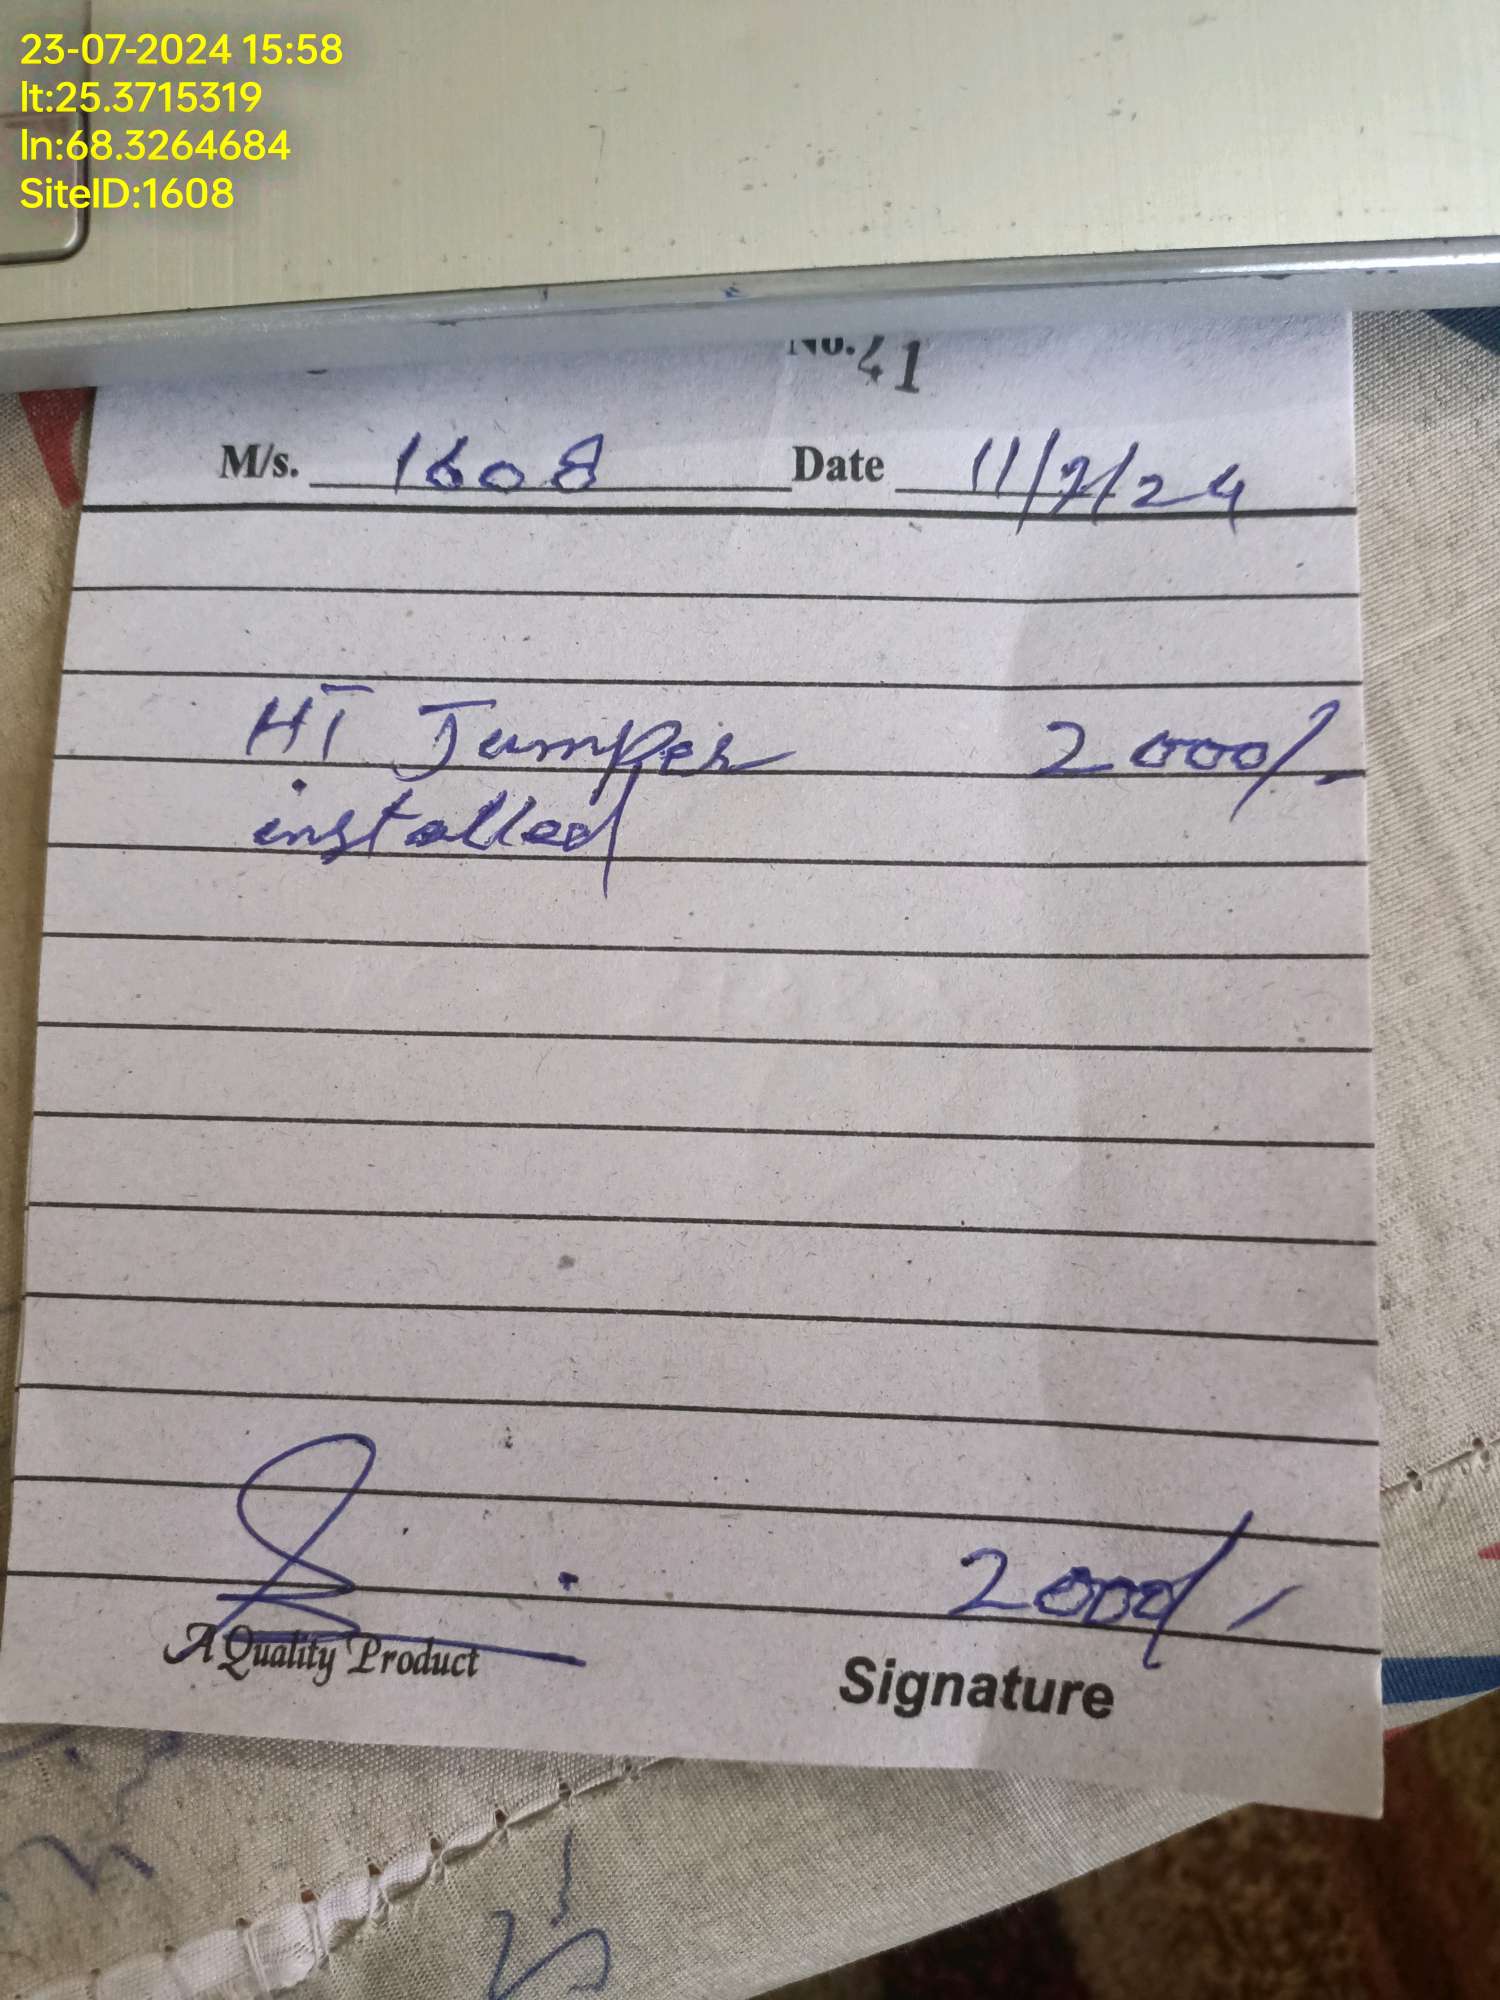 23-07-2024 15:58
lt:25.3715319
ln:68.3264684
SiteID:1608
No. 41
M/s. 1608 Date 11/7/24
HT Jumper 2000/-
installed
2000/-
A Quality Product
Signature